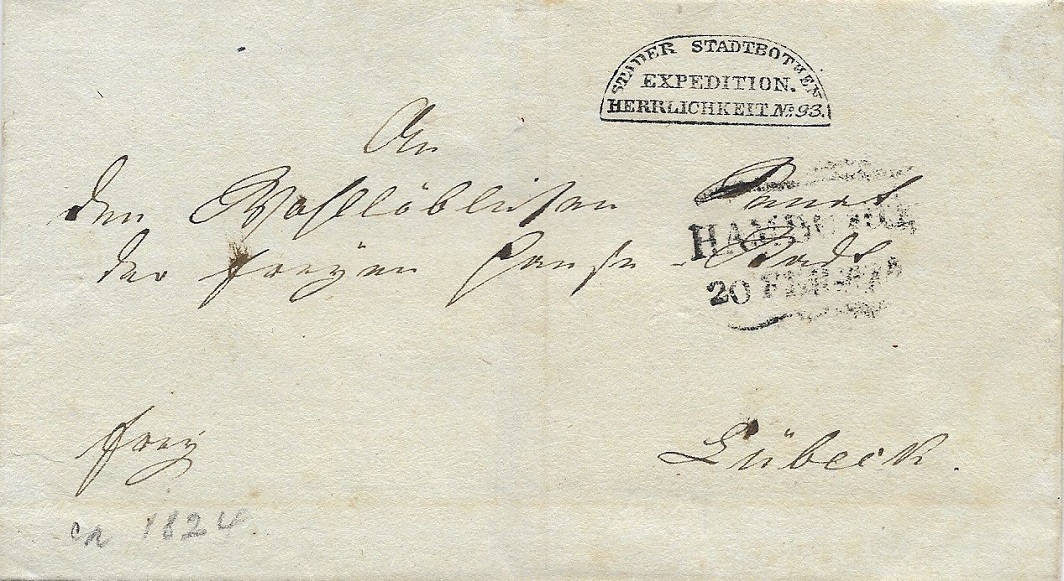 STADER STADTBOTHEN
EXPEDITION.
HERRLICHKEIT No. 93.
An
den Wohllöblichen Senat
der freyen Hanse-Stadt
HAMBURG
20 FEB
frey
Lübeck.
ca 1824